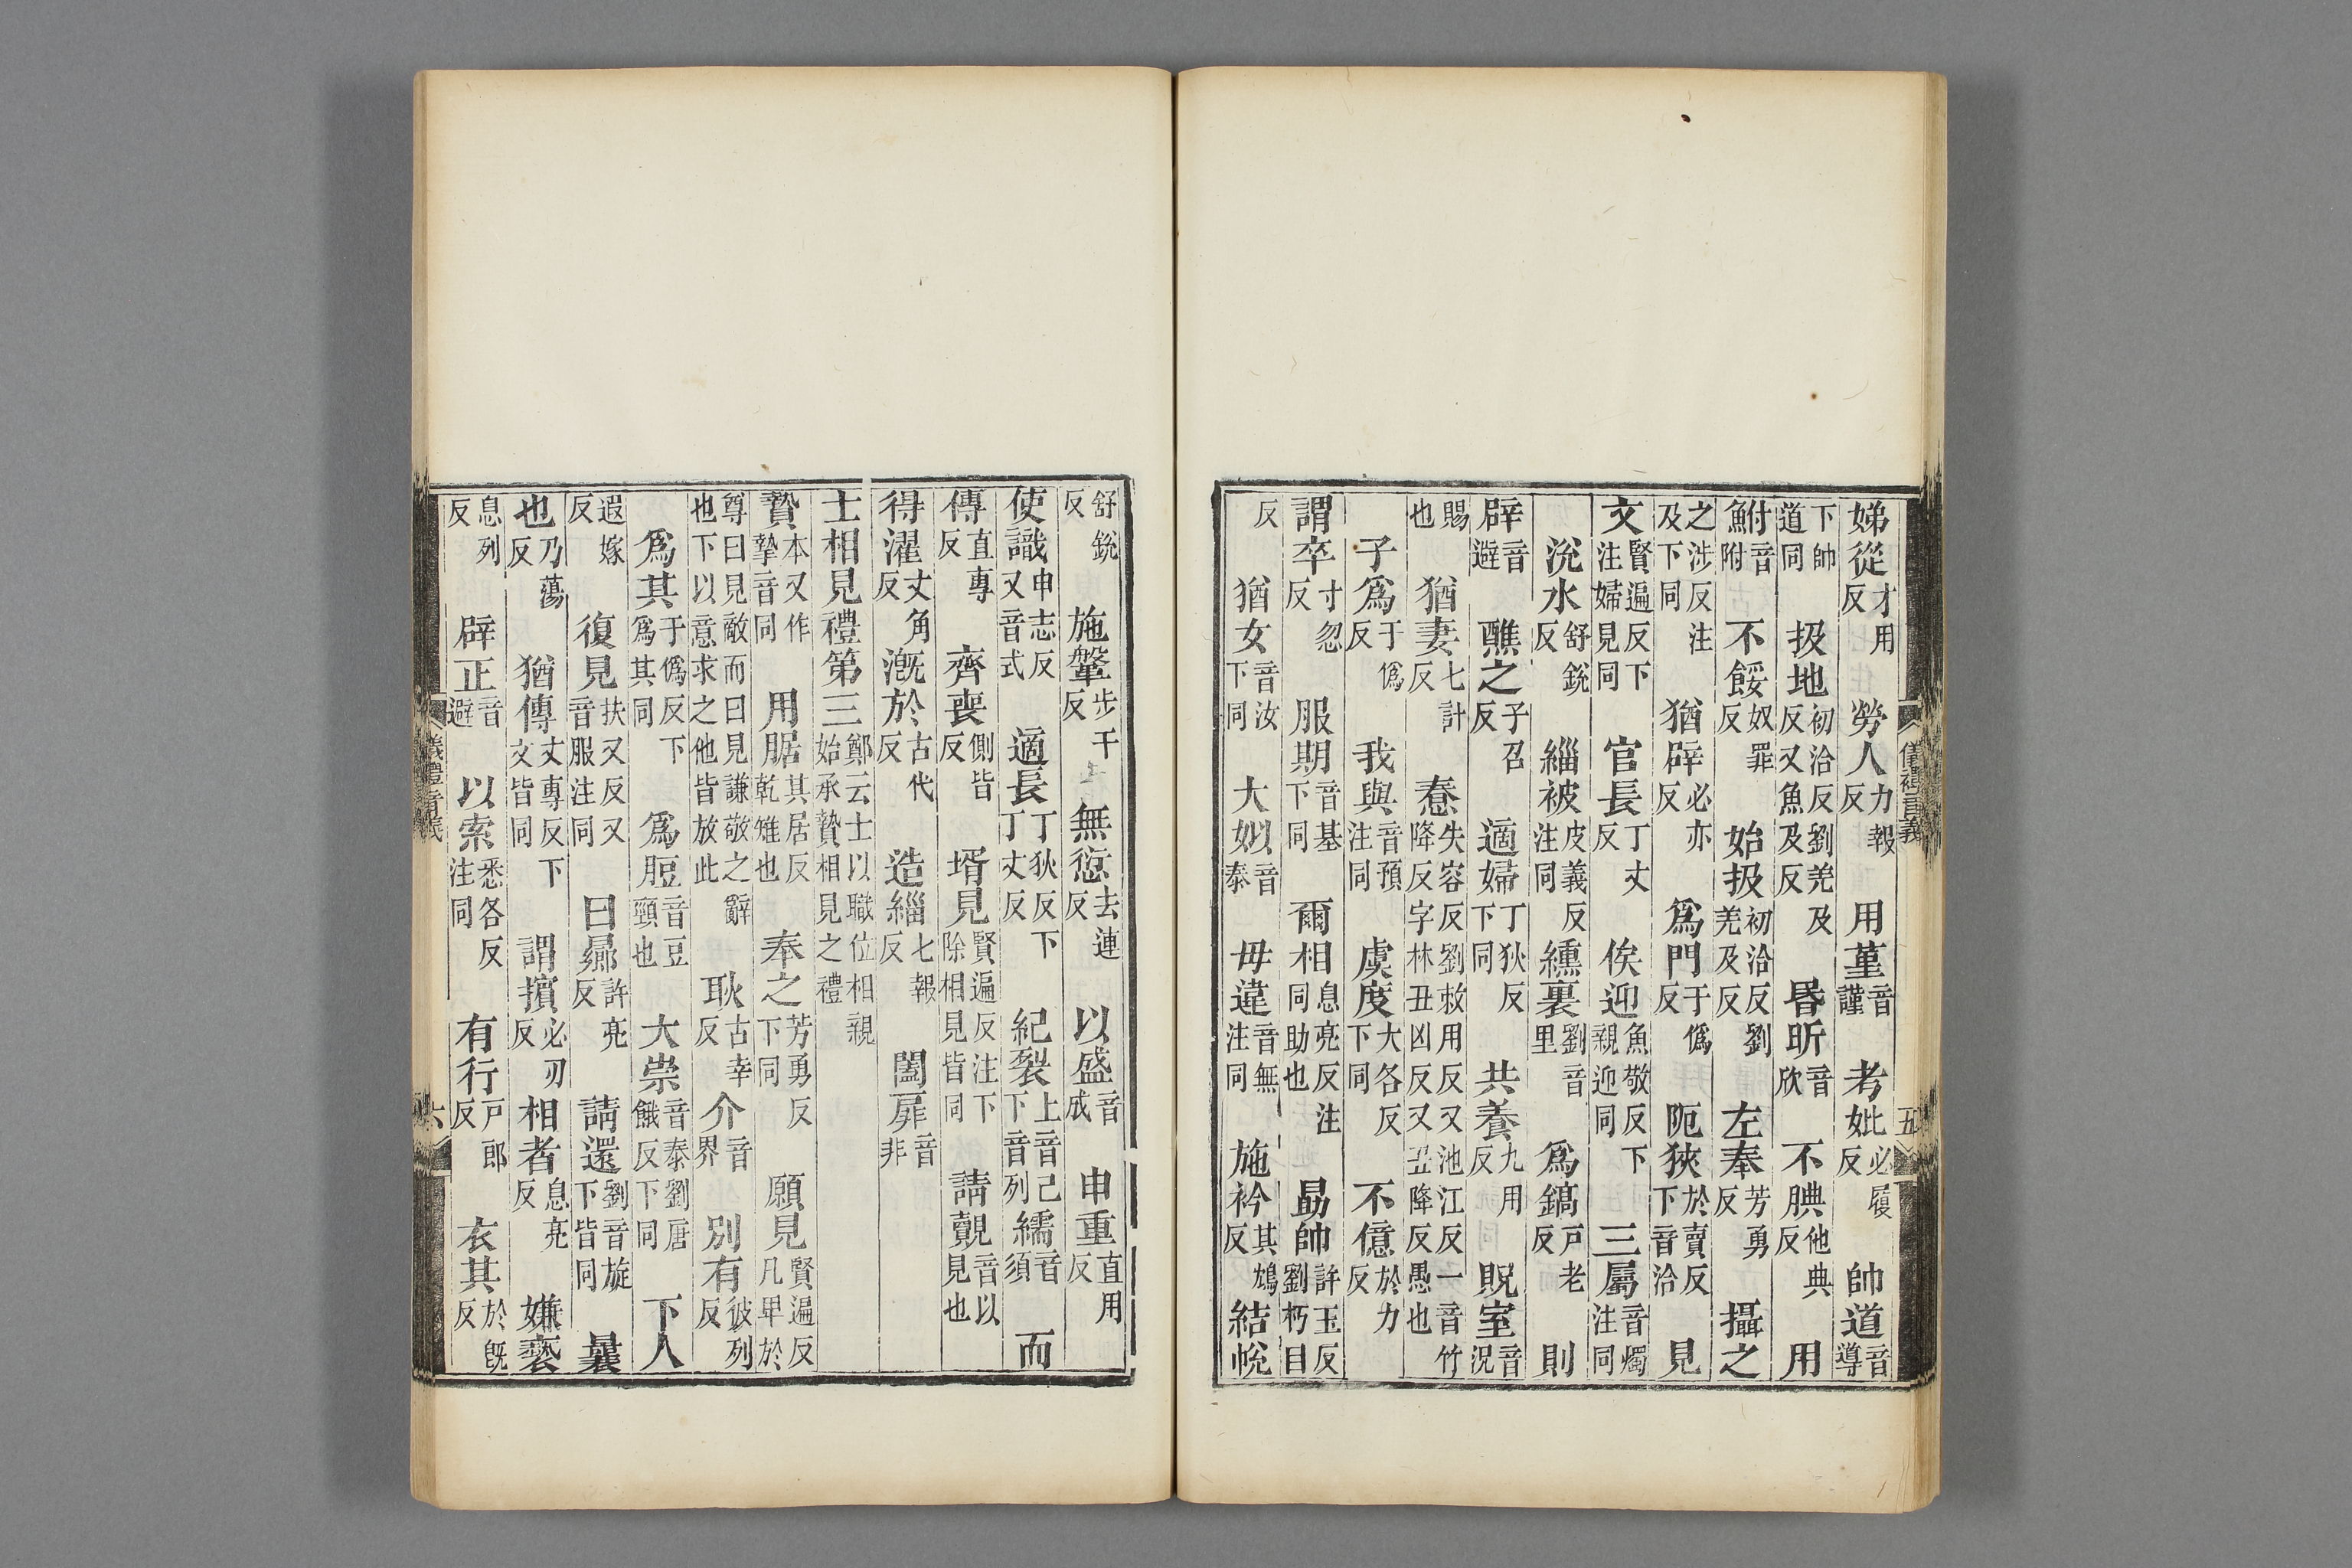 娣從才用反　勞人力報反　用堇音謹　考妣必履反　帥道音導
下帥道同　扱地初洽反劉羌及反又魚及反　昏昕音欣　不腆他典反　用
鮒音附　不餒奴罪反　始扱初洽反劉羌及反　左奉芳勇反　攝之
之涉反注及下同　猶辟必亦反　爲門于僞反　阨狹於賣反下音洽　見
文賢遍反下注婦見同　官長丁丈反　俟迎魚敬反下親迎同　三屬音燭注同
涗水舒銳反　緇被皮義反注同　纁裏劉音里　爲鎬戶老反　則
辟音避　醮之子召反　適婦丁狄反下同　共養九用反　貺室音況
賜也　猶妻七計反　惷失容反劉敕用反又池江反一音竹降反字林丑凶反又丑降反愚也
子爲于僞反　我與音預注同　虞度大各反下同　不億於力反
謂卒寸忽反　服期音基下同　爾相息亮反注同助也　勗帥許玉反劉朽目
反　猶女音汝下同　大姒音泰　毋違音無注同　施衿其鴆反　結帨
儀禮音義
五
舒銳反　施鞶步干反　無愆去連反　以盛音成　申重直用反
使識申志反又音式　適長丁狄反下丁丈反　紀裂上音己下音列　繻音須　而
傳直專反　齊喪側皆反　壻見賢遍反注下除相見皆同　請覿音以見也
得濯丈角反　漑於古代反　造緇七報反　闔扉音非
士相見禮第三鄭云士以職位相親始承贄相見之禮
贄本又作摯音同　用腒其居反乾雉也　奉之芳勇反下同　願見賢遍反凡卑於
尊曰見敵而曰見謙敬之辭也下以意求之他皆放此　耿古幸反　介音界　別有彼列反
爲其于僞反下爲其同　爲脰音豆頸也　大崇音泰劉唐餓反下同　下人
遐嫁反　復見扶又反又音服注同　曰曏許亮反　請還劉音旋下皆同　曩
也乃蕩反　猶傳丈專反下文皆同　謂擯必刃反　相者息亮反　嫌褻
息列反　辟正音避　以索悉各反注同　有行戶郎反　衣其於旣反
儀禮音義
六